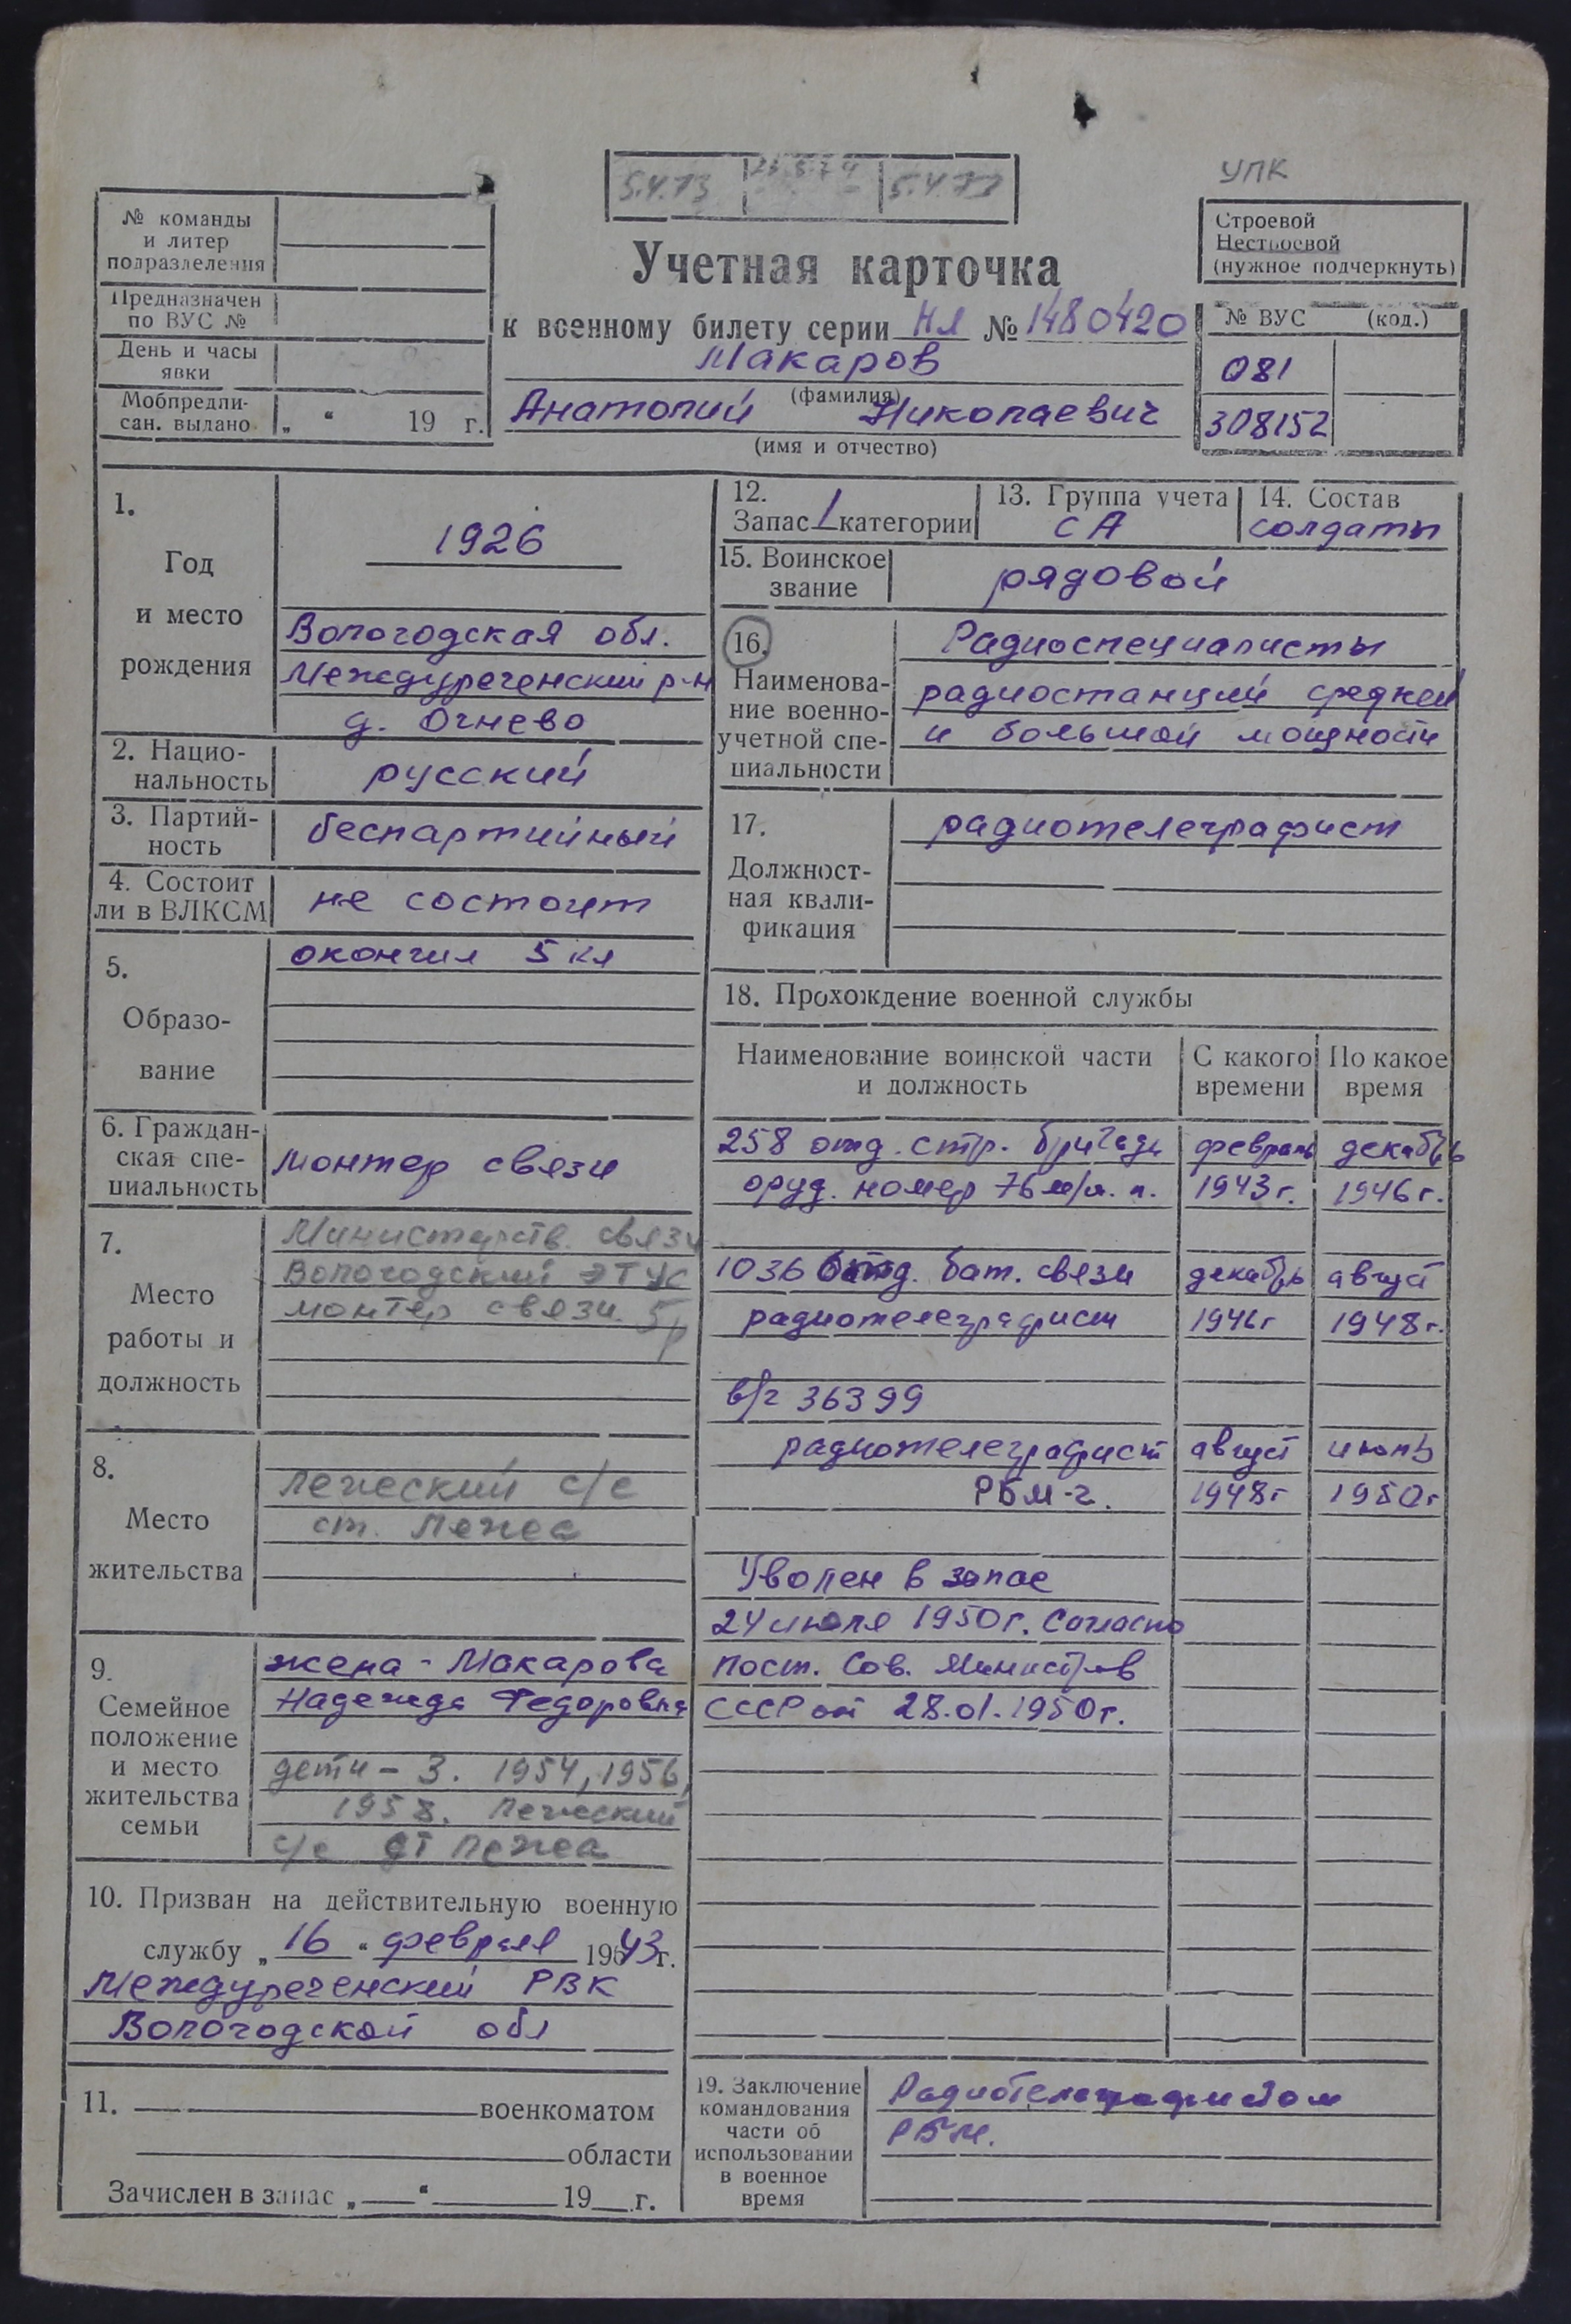 УПК
5.4.73 23.5.74 5.4.77
№ команды
и литер
подразделения
Предназначен
по ВУС №
День и часы
явки
Мобпредпи-
сан. выдано „ “ 19 г.
Учетная карточка
к военному билету серии НЛ № 1480420
Макаров
(фамилия)
Анатолий Николаевич
(имя и отчество)
Строевой
Нестроевой
(нужное подчеркнуть)
№ ВУС (код.)
081
308152
1.
Год
и место
рождения
1926
Вологодская обл.
Междуреченский р-н
д. Огнево
2. Нацио-
нальность
русский
3. Партий-
ность
беспартийный
4. Состоит
ли в ВЛКСМ
не состоит
5.
Образо-
вание
окончил 5 кл
6. Граждан-
ская спе-
циальность
монтер связи
7.
Место
работы и
должность
Министерств. связи
Вологодский ЭТУС
монтер связи 5р
8.
Место
жительства
Лежский с/с
ст. Лежа
9.
Семейное
положение
и место
жительства
семьи
жена - Макарова
Надежда Федоровна
дети - 3. 1954, 1956,
1958. Лежский
с/с ст Лежа
10. Призван на действительную военную
службу „ 16 “ февраля 1943 г.
Междуреченский РВК
Вологодской обл
11. военкоматом
области
Зачислен в запас „ “ 19 г.
12.
Запас 1 категории
13. Группа учета
СА
14. Состав
солдаты
15. Воинское
звание
рядовой
16.
Наименова-
ние военно-
учетной спе-
циальности
Радиоспециалисты
радиостанций средней
и большой мощности
17.
Должност-
ная квали-
фикация
радиотелеграфист
18. Прохождение военной службы
Наименование воинской части
и должность
С какого
времени
По какое
время
258 отд. стр. бригады февраль декабрь
оруд. номер 76 м/м. п. 1943 г. 1946 г.
1036 отд. бат. связи декабрь август
радиотелеграфист 1946 г 1948 г.
в/ч 36399
радиотелеграфист август июль
РБМ-2. 1948 г 1950 г
Уволен в запас
24 июля 1950 г. Согласно
пост. Сов. Министров
СССР от 28.01.1950 г.
19. Заключение
командования
части об
использовании
в военное
время
Радиотелеграфистом
РБМ.